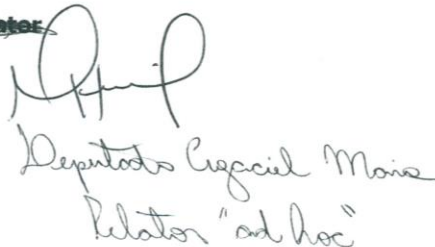 Deputado Cgaciel Maia
Relator "ad hoc"